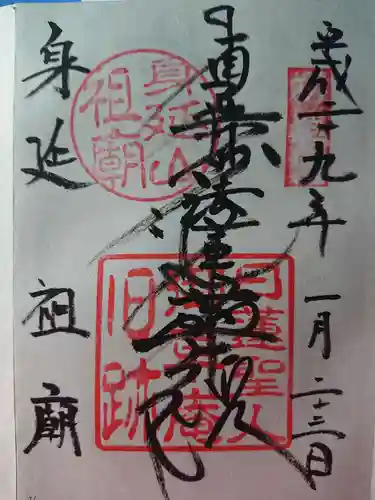 平成二十九年 一月二十三日
南無妙法蓮華経
身延山
祖廟
日蓮聖人
御草庵
旧跡
身延 祖廟